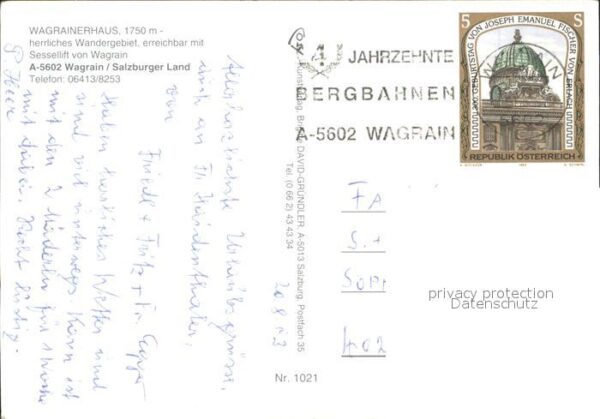 WAGRAINERHAUS, 1750 m -
herrliches Wandergebiet, erreichbar mit
Sessellift von Wagrain
A-5602 Wagrain / Salzburger Land
Telefon: 06413/8253
4 JAHRZEHNTE
BERGBAHNEN
A-5602 WAGRAIN
5 S
300. GEBURTSTAG VON JOSEPH EMANUEL FISCHER VON ERLACH
REPUBLIK ÖSTERREICH
Kunstverlag, Bruno DAVID-GRÜNDLER, A-5013 Salzburg, Postfach 35
Tel. (0 66 2) 43 43 34
Allerherzlichste Urlaubsgrüsse,
auch an Fr.
von
Friedl + Fritz + Fa.
Haben herrliches Wetter und
sind viel unterwegs. Karin ist
mit den 2 Kindern für 1 Woche
mit dabei. Recht lustig.
20.8.93
FA
402
privacy protection
Datenschutz
Nr. 1021